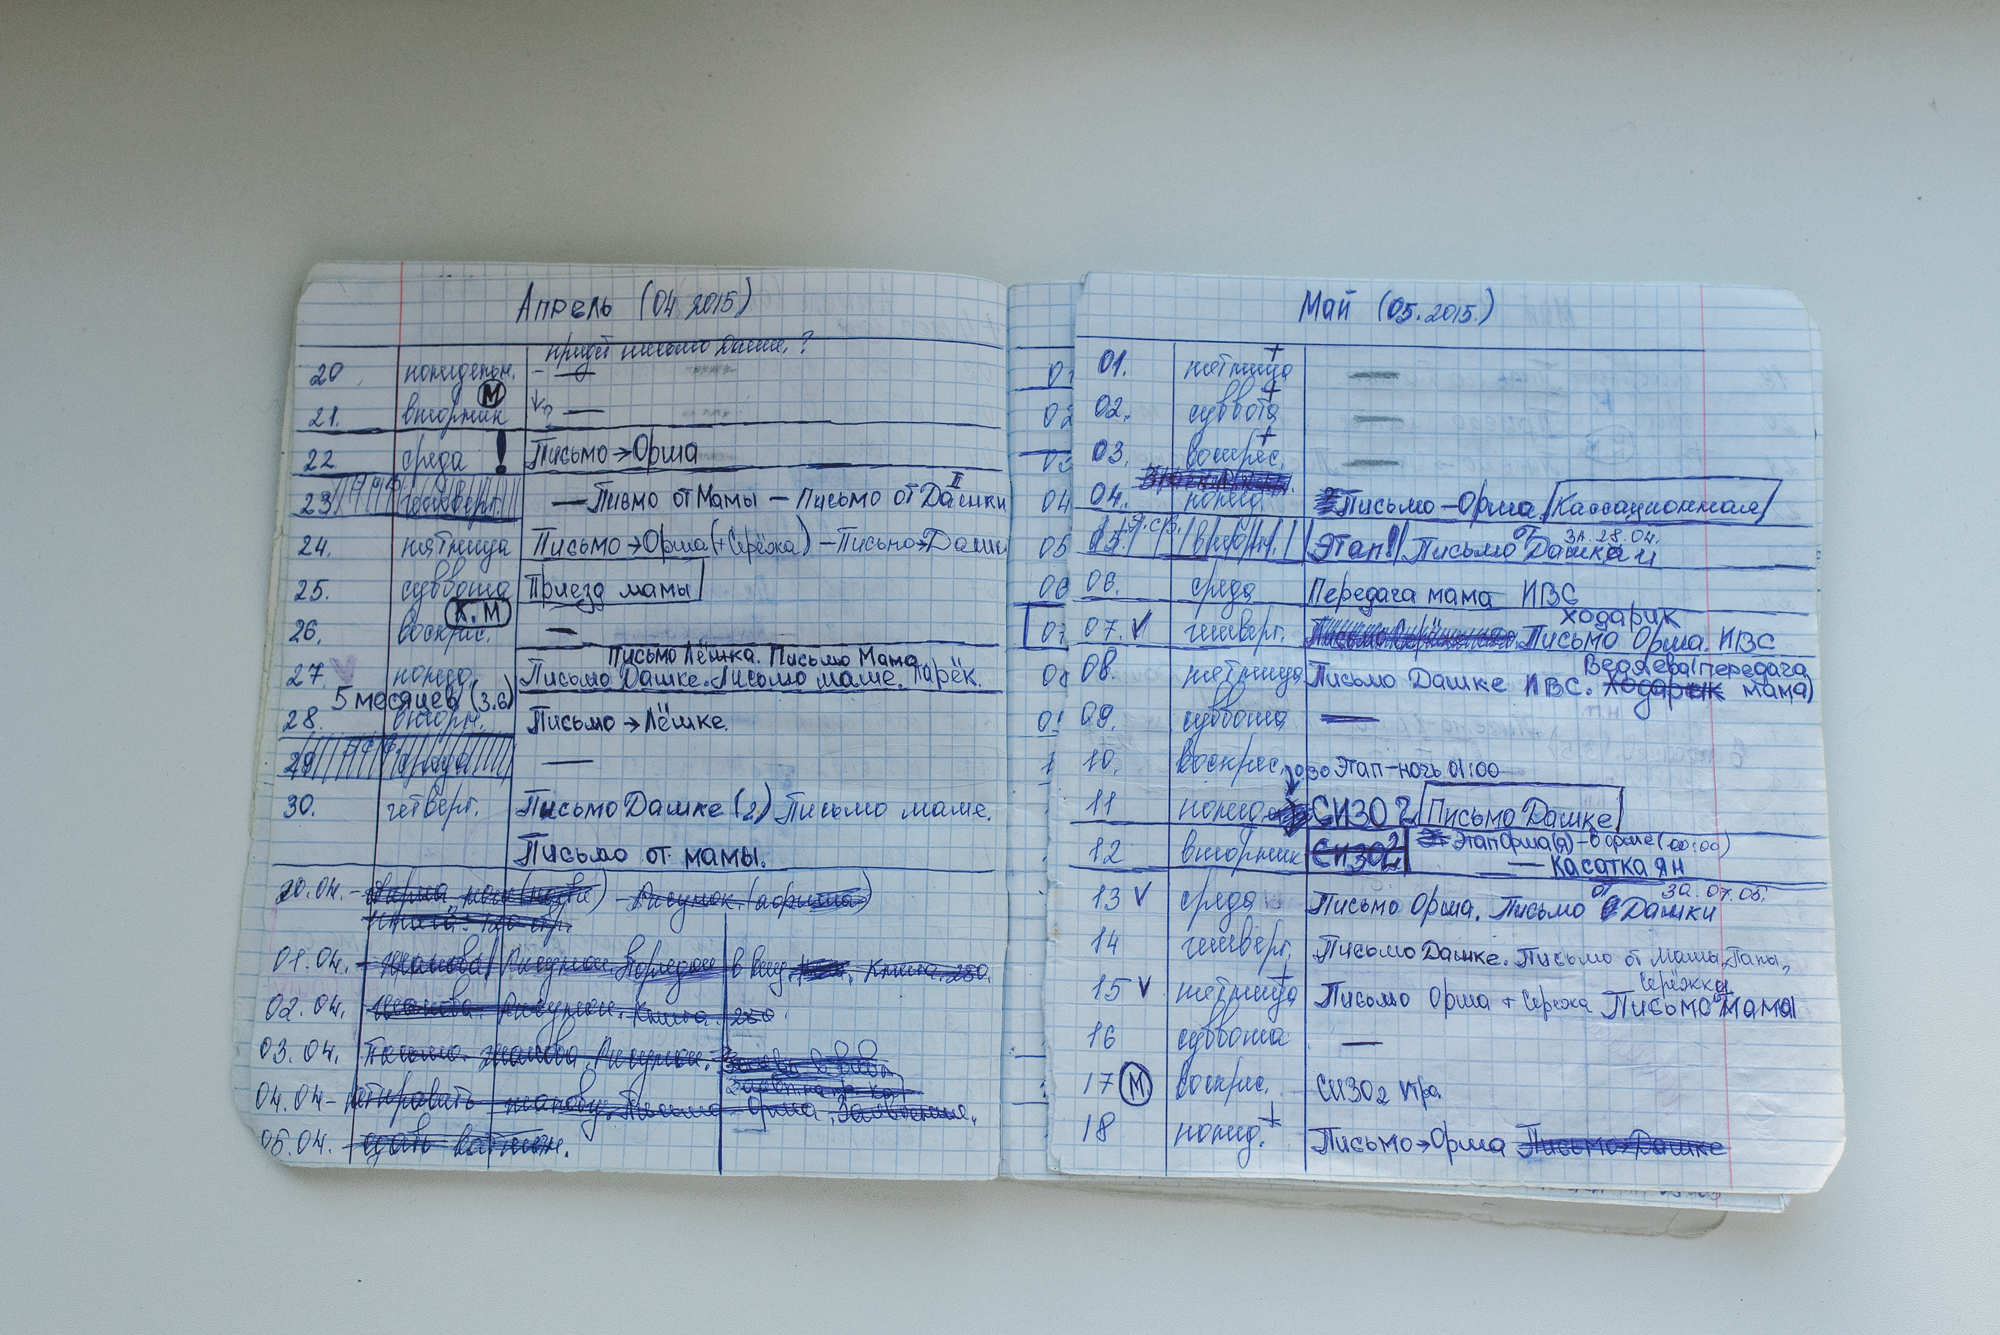 Апрель (04.2015)
придёт письмо Даше.?
20. понедельн. —
М
21. вторник ? —
22 среда ! Письмо→Орша
II
23 четверг. — Писмо от Мамы — Письмо от Дашки
24. пятница Письмо→Орша (+Серёжа) — Письмо→Дашк
25. суббота Приезд мамы
К.М
26. воскрес. —
Письмо Лёшка. Письмо Мама
27. понед. Письмо Дашке. Письмо маме. Ларёк.
5 месяцев (3.6)
28. вторн. Письмо→Лёшке.
29 среда —
30. четверг. Письмо Дашке (2) Письмо маме.
Письмо от мамы.
20.04. – Рисунок.
01.04. – Рисунок. Порядок Книга. 250.
02.04. Рисунок. Книга. 250.
03.04. Письмо. Рисунок.
04.04 – Письмо – Орша.
05.04. – сдать
Май (05.2015.)
01. пятница + —
02. суббота + —
03. воскрес. + —
04. понед. Письмо – Орша. Кассационная
от за 28.04.
05. вторн. Этап! Письмо Дашки
06. среда Передача мама ИВС
Ходарик
07. ✓ четверг. Письмо Орша. ИВС
Ведяева (передача
08. пятница Письмо Дашке ИВС. Ходарик мама)
09. суббота —
10. воскрес. Этап – ночь 01:00
11 понед. СИЗО 2 Письмо Дашке
Этап Орша(я) – Ворше (00:00)
12 вторник СИЗО 2 — Касатка ян
от за. 07.05.
13 ✓ среда Письмо Орша. Письмо Дашки
14 четверг. Письмо Дашке. Письмо от Мамы, Папы,
Серёжки
15 ✓ пятница + Письмо Орша + Сережа Письмо Мама
16 суббота —
17 М воскрес. СИЗО2
18 понед. + Письмо→Орша Письмо→Дашке
01
02
03
04
05
06
07
08